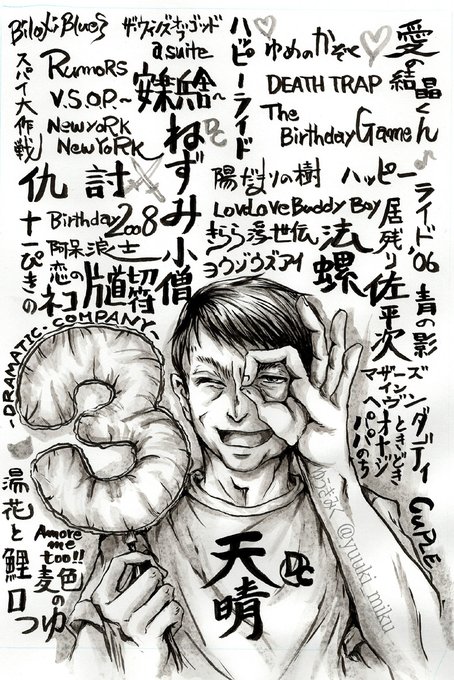 Biloxi Blues
ザ・ウィングズ・オブ・ゴッド
a suite
ハッピーライド
ゆめのかぞく
愛の結晶くん
スパイ大作戦
RumoRS
V.S.O.P.~
安兵衛舎~
DEATH TRAP
NewYoRK
NewYoRK
ねずみ小僧
DC
The
Birthday Game
仇討
陽だまりの樹
ハッピーライド'06
十一ぴきのネコ
Birthday 2008
LoveLove Buddy Boy
居残り佐平次
阿保浪士
きらら浮世伝
法螺
恋の片道切符
ヨウゾウズアイ
青の影
-DRAMATIC.COMPANY-
3
マザーズ
イン
ヘヴン
ときどき
オヤジ
パパのち
ダディ
CuPLE
湯花と鯉口
Amore
me
too!!
麦色のつゆ
天晴
DC
ゆうき みく @yuuki miku